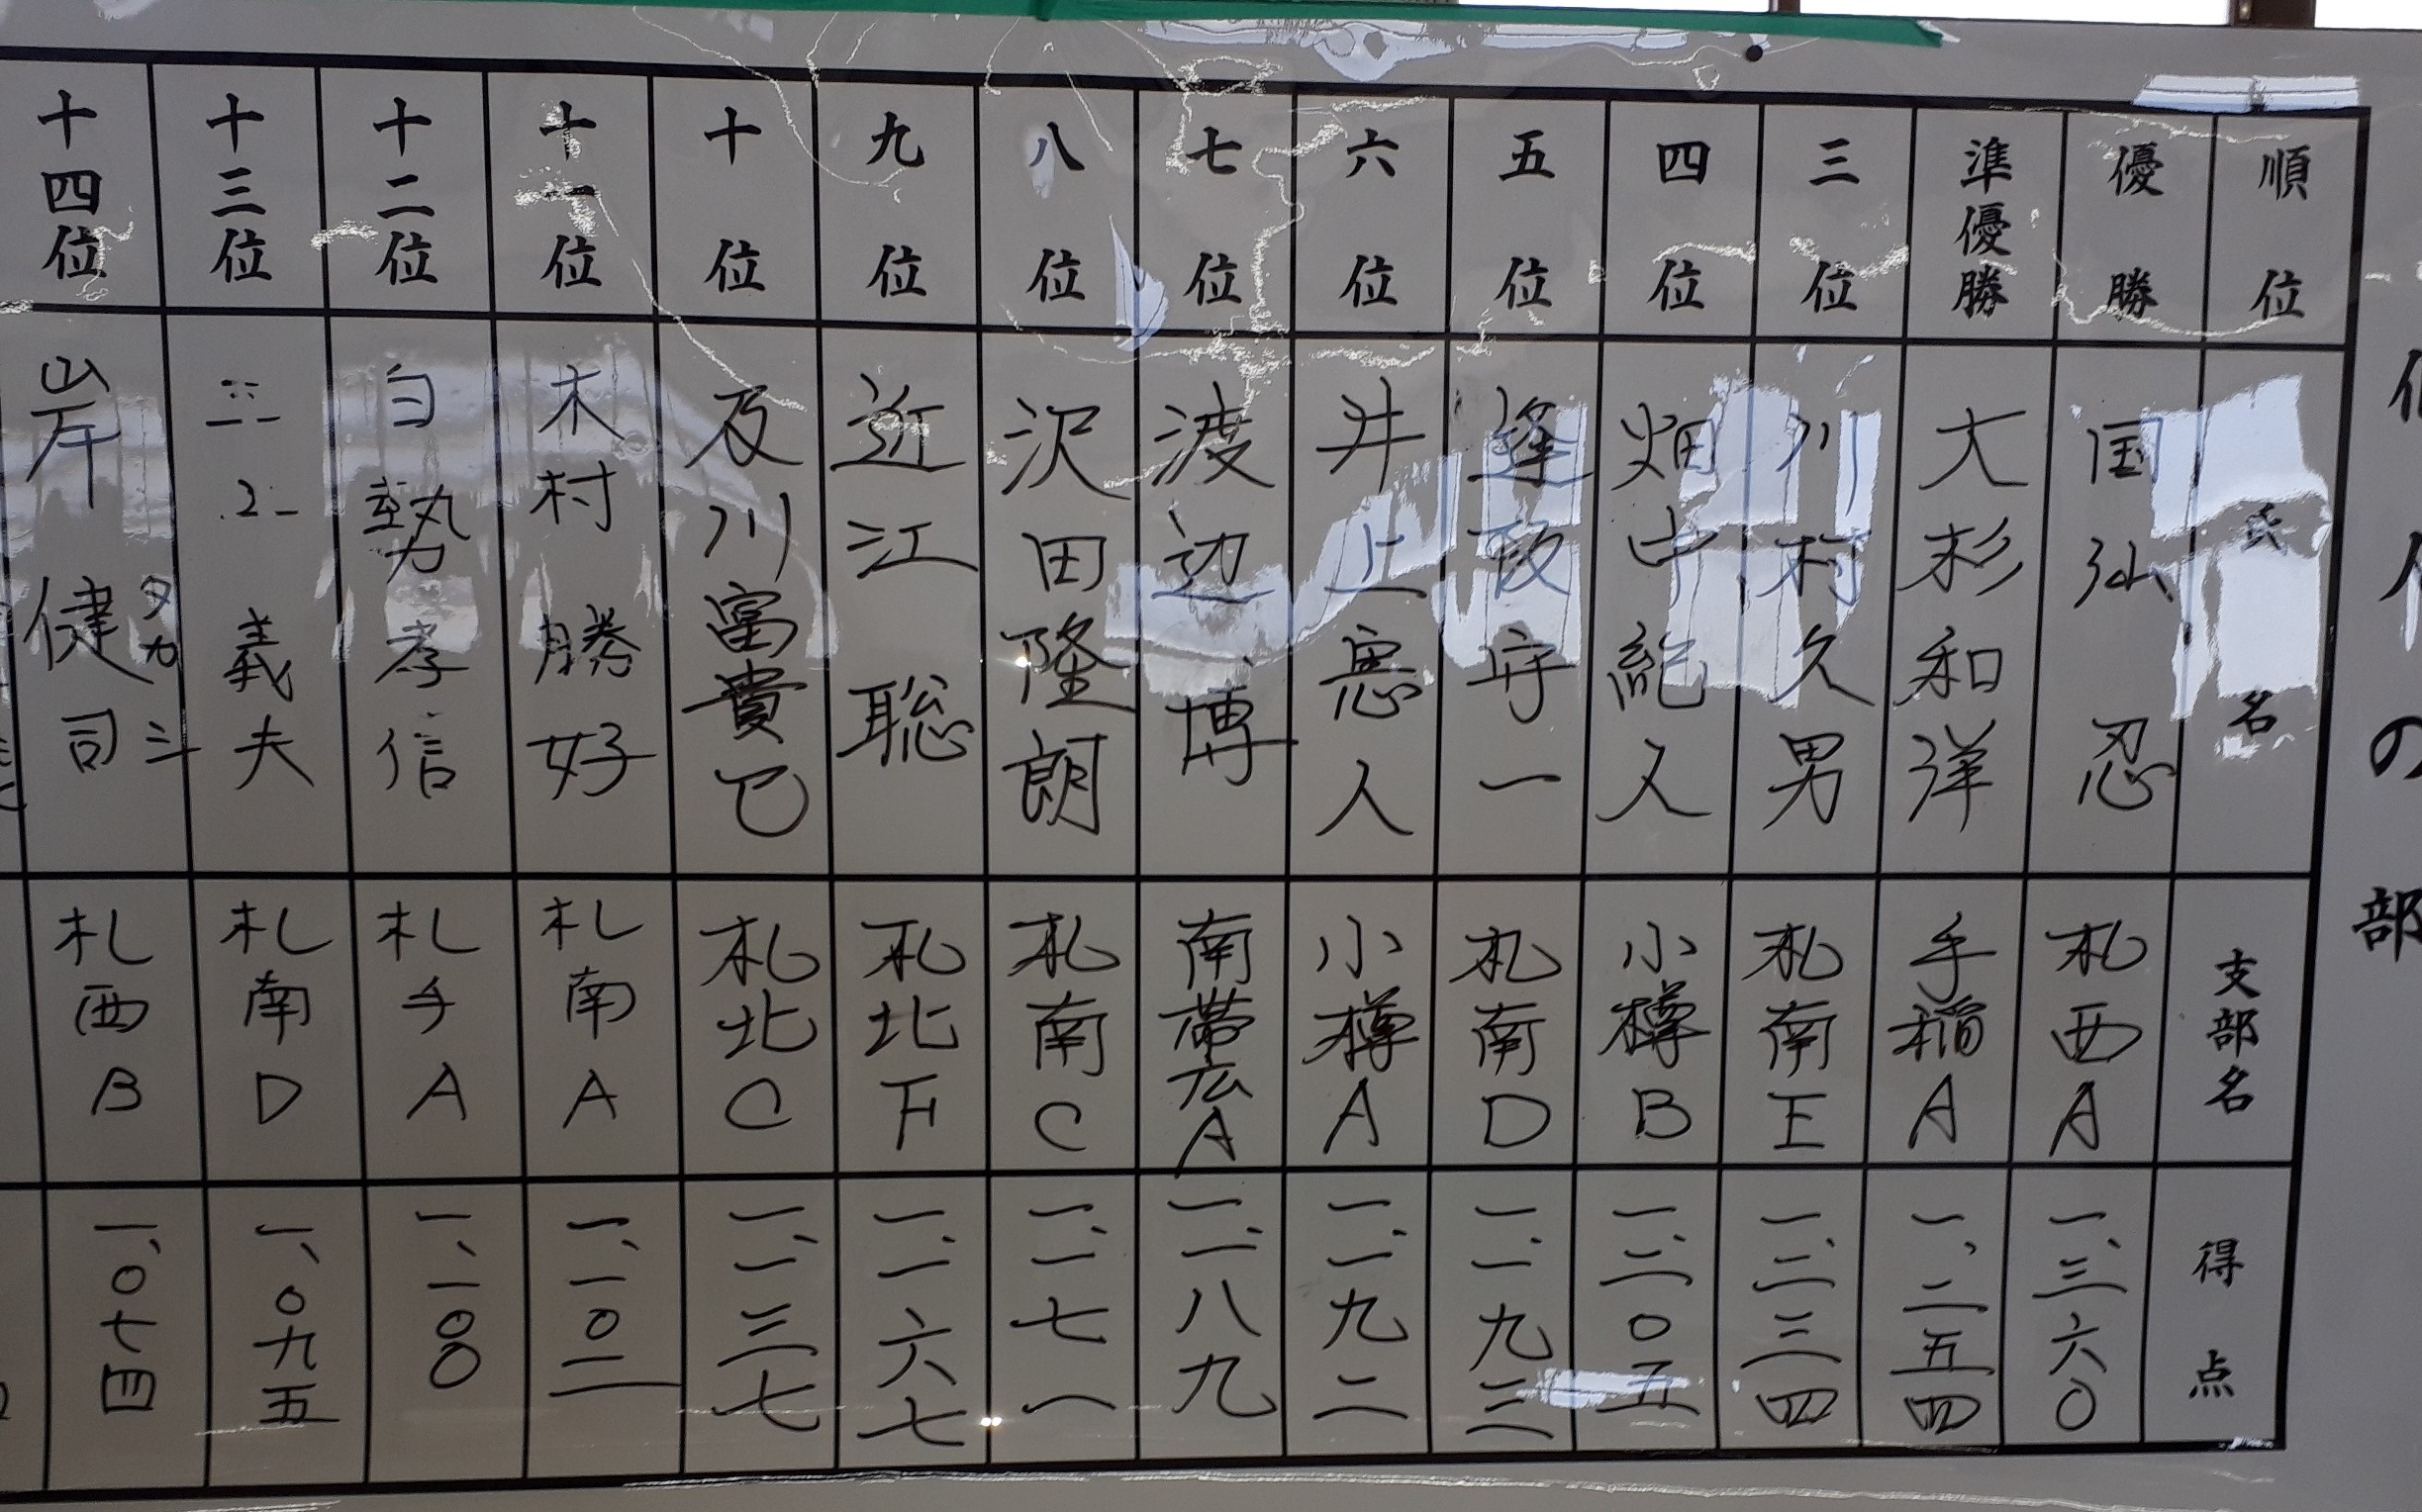 個人の部
順位 氏名 支部名 得点
優勝 国汕 忍 札西A 一、三六〇
準優勝 大杉和洋 手稲A 一、二五四
三位 川村久男 札南E 一、二三四
四位 畑中紀人 小樽B 一、二〇五
五位 逢坂守一 札南D 一、一九三
六位 井上憲人 小樽A 一、一九二
七位 渡辺博 南帯広A 一、一八九
八位 沢田隆朗 札南C 一、一七一
九位 近江 聡 札北F 一、一六七
十位 及川富貴巳 札北C 一、一三七
十一位 木村勝好 札南A 一、一〇二
十二位 白勢孝信 札手A 一、一〇〇
十三位 義夫 札南D 一、〇九五
十四位 岸 健司 札西B 一、〇七四